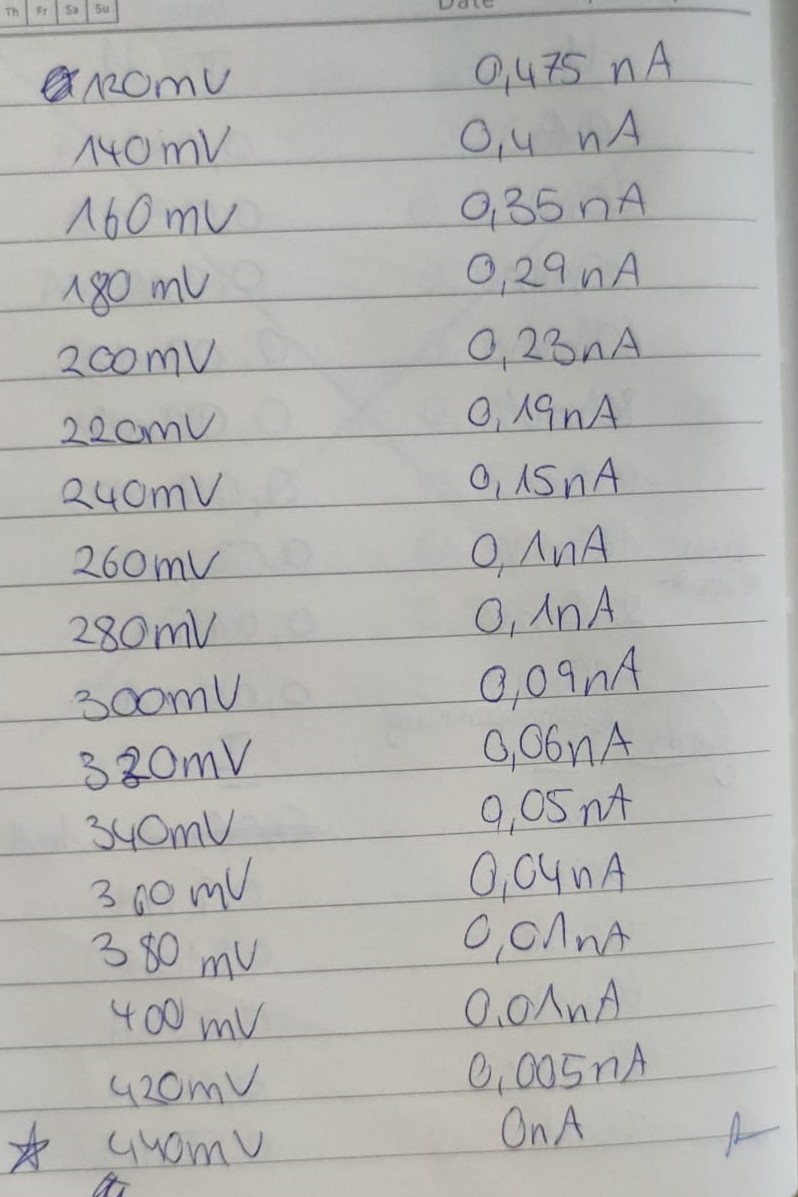 Th Fr Sa Su
Date
120mV 0,475 nA
140mV 0,4 nA
160mV 0,35nA
180 mV 0,29nA
200mV 0,23nA
220mV 0,19nA
240mV 0,15nA
260mV 0,1nA
280mV 0,1nA
300mV 0,09nA
320mV 0,06nA
340mV 0,05nA
360mV 0,04nA
380 mV 0,01nA
400 mV 0.01nA
420mV 0,005nA
440mV 0nA